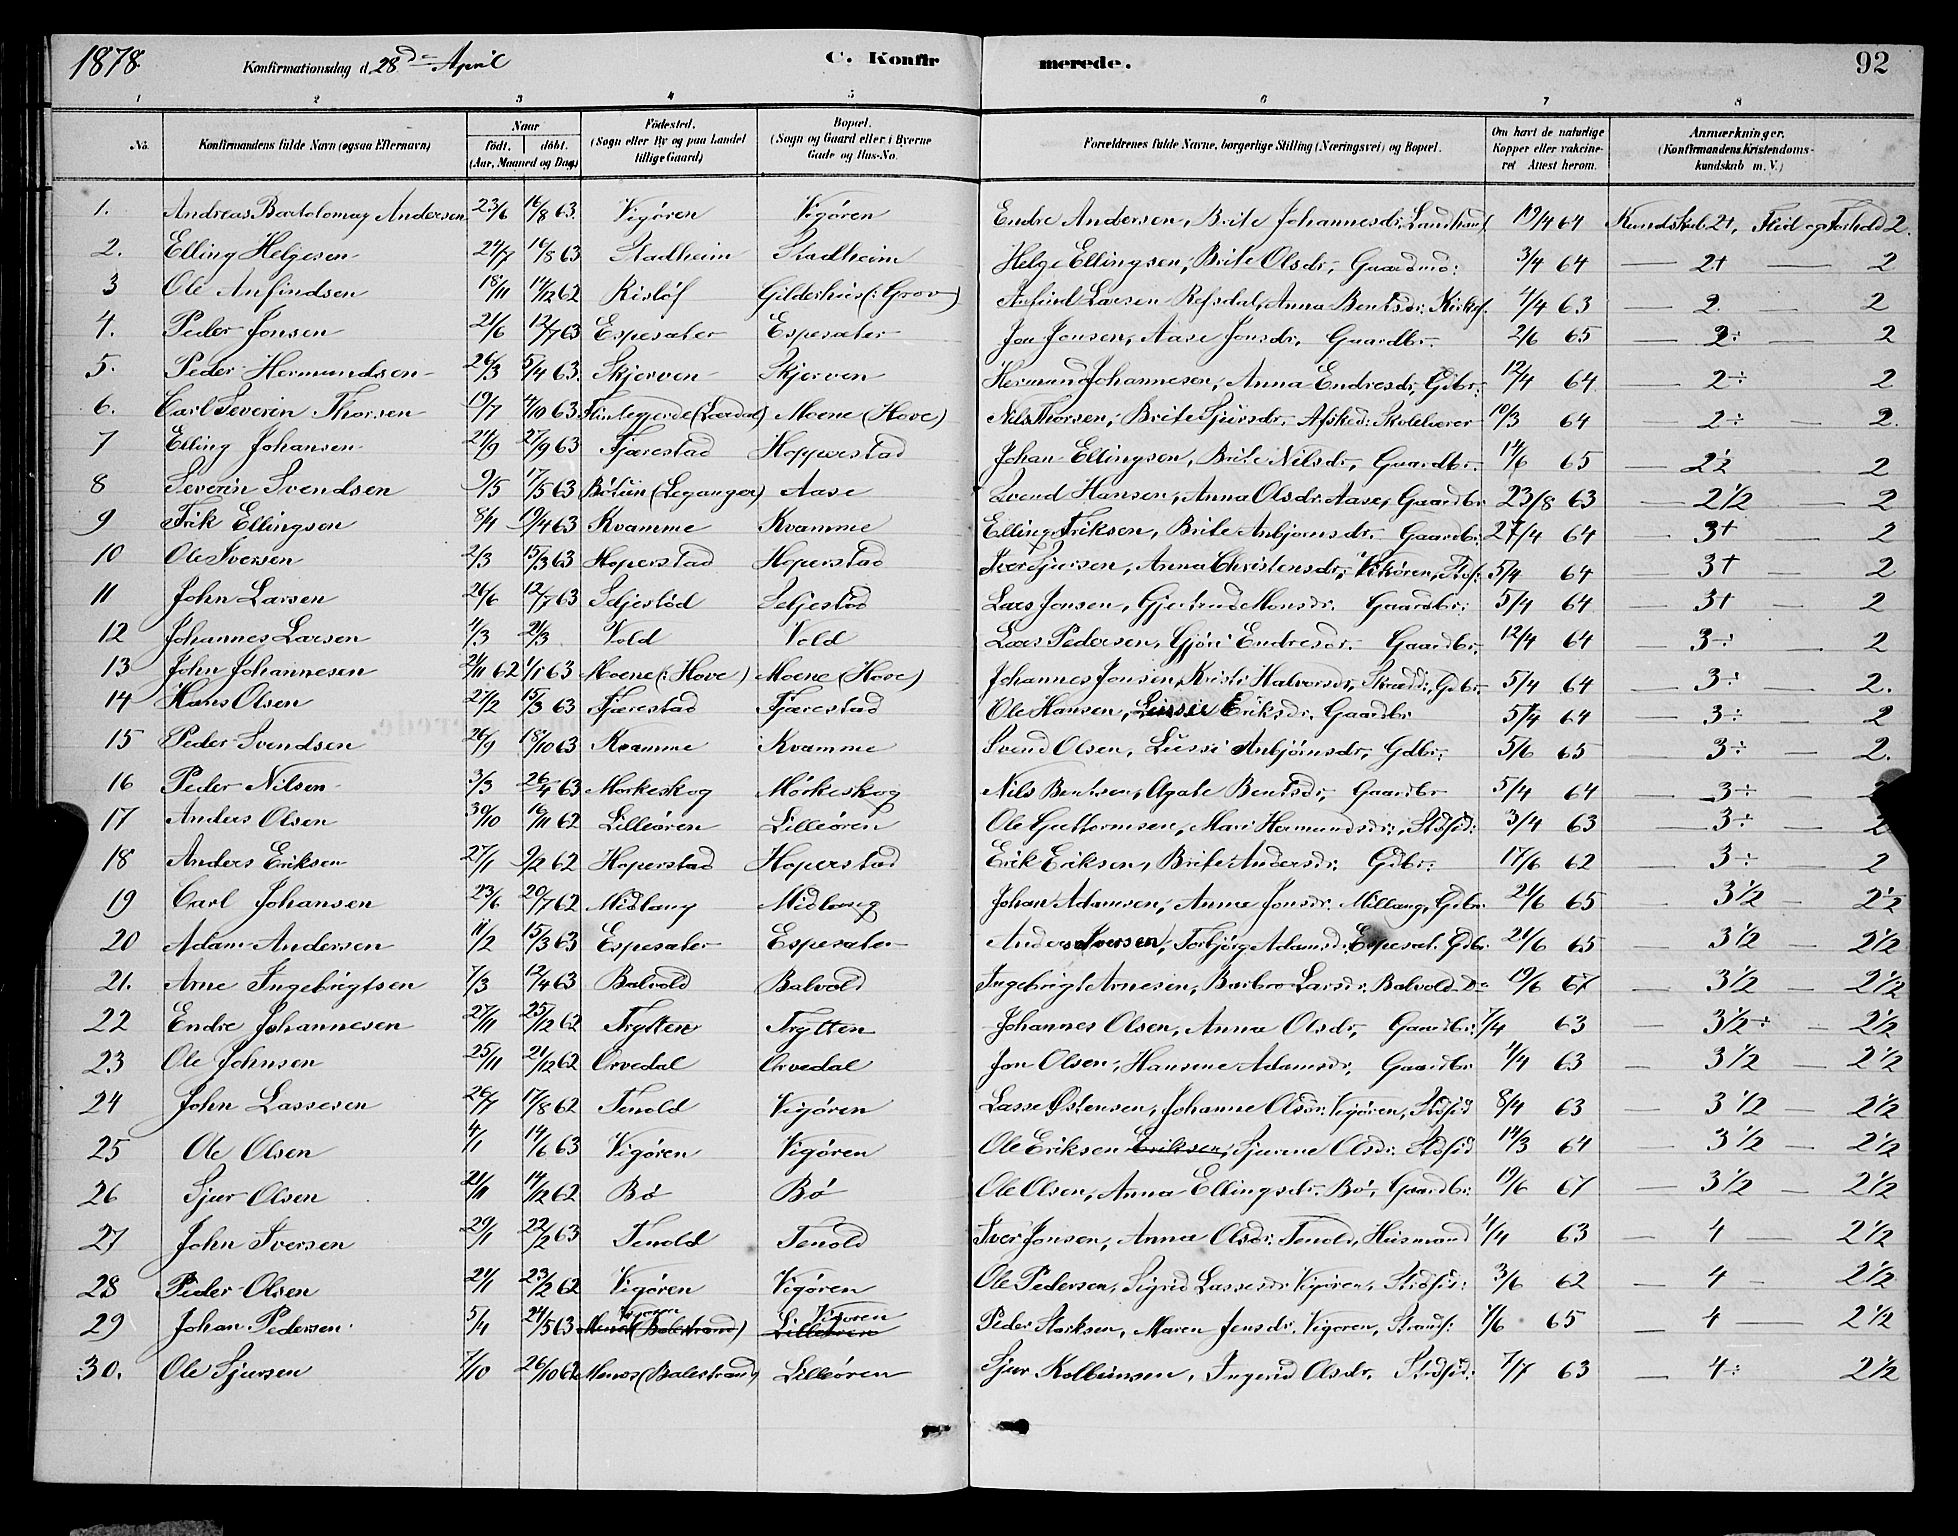 1878. Konfirmationsdag d. 28de April C. Konfirmerede. 92
1 2 3 4 5 6 7 8
No. Konfirmandens fulde Navn (ogsaa Efternavn) Naar født. døbt. (Aar, Maaned og Dag) Fødested. (Sogn eller By og paa Landet tillige Gaard) Bopæl. (Sogn og Gaard eller i Byerne Gade og Hus-No. Forældrenes fulde Navne, borgerlige Stilling (Næringsvei) og Bopæl. Om havt de naturlige Kopper eller vakcineret Attest herom. Anmærkninger. (Konfirmandens Kristendomskundskab m. V.)
1. Andreas Bartolomay Andersen 23/6 16/8 63. Vigøren Vigøren Endre Andersen, Brite Johannesdr. Landhand. 19/4 64 Kundskab 2+, Flid og Forhold 2.
2. Elling Helgesen 24/7 16/8 63 Stadheim Stadheim Helge Ellingsen, Brite Olsdr, Gaardmd: 3/4 64 — 2+ — 2
3 Ole Anfindsen 18/11 14/12 62 Risløf Gilderhus (: Grov) Anfind Larsen Refsdal, Anna Bentsdr. Kirkes. 4/4 63 — 2. — 2
4. Peder Jonsen 21/6 12/7 63 Espesæter Espesæter Jon Jonsen, Aase Jonsdr. Gaardbr. 2/6 65 — 2÷ — 2
5. Peder Hermundsen 26/3 5/4 63. Skjerven Skjerven Hermund Johannesen, Anna Endresdr, Gdbr. 12/4 64 — 2÷ 2
6. Carl Severin Thorsen 19/7 4/10 63. (Lærdal) Moene (Hove) Nils Thorsen, Brite Sjursdr. Afsked. Skolelærer 10/3 64 — 2÷ — 2.
7 Elling Johansen 24/9 27/9 63 Fjærestad Hopperstad Johan Ellingsen, Brite Nilsdr, Gaardbr. 14/6 65 — 2½ 2
8 Severin Svendsen 9/5 17/5 63 Bøtun (Leganger) Aase Svend Hansen, Anna Olsdr. Aase, Gaardbr 23/8 63 — 2 1/2 — 2
9 Erik Ellingsen 8/4 19/4 63 Kvamme Kvamme Elling Eriksen, Brite Anbjørnsdr. Gaardbr. 27/4 64 — 3+ — 2
10 Ole Iversen 2/3 15/3 63 Hoperstad Hoperstad Iver Sjursen, Anna Christensdr, Vikøren, Stdf: 5/4 64 — 3+ — 2
11 John Larsen 26/6 12/7 63 Seljestød Seljestød Lars Jonsen, Gjertrud Monsdr. Gaardbr: 5/4 64 — 3+ — 2
12 Johannes Larsen 4/3 21/3 Vold Vold Lars Pedersen, Gjøri Endresdr. Gaardbr. 12/4 64 — 3÷ — 2
13 John Johannesen 21/11 62 1/1 63 Moene (: Hove) Moene (Hove) Johannes Jonsen, Kristi Halvorsdr, Skrædd., Gdbr. 5/4 64 — 3÷ 2.
14 Hans Olsen 21/2 15/3 63 Fjærestad Fjærestad Ole Hansen, Lussie Eriksdr, Gaardbr 5/4 64 — 3÷ — 2
15 Peder Svendsen 26/9 18/10 63 Kvamme Kvamme Svend Olsen, Lussi Anbjørnsdr, Gdbr. 5/6 65 — 3÷ — 2.
16 Peder Nilsen 3/3 26/4 63 Mørkeskog Mørkeskog Nils Bentsen, Agate Bentsdr, Gaardbr 5/4 64 — 3÷ —
17 Anders Olsen 30/10 16/11 62 Lilleøren Lilleøren Ole Guttormsen, Mari Hermundsdr, Stdsid: 3/4 63 — 3÷ — 2
18 Anders Eriksen 27/1 9/2 62 Hoperstad Hoperstad Erik Eriksen, Brite Andersdr. Gdbr: 17/6 62 — 3÷ 2
19 Carl Johansen 23/6 20/7 62 Midlang Midlang Johan Adamsen, Anna Jonsdr. Millang, Gdbr. 21/6 65 — 3 1/2 — 2½
20 Adam Andersen 11/2 15/3 63 Espesæter Espesæter Anders Iversen, Torbjørg Adamsd. Espesæt. Gdbr. 21/6 65 — 3 1/2 — 2 1/2
21. Arne Ingebrigtsen 7/3 12/4 63 Balvold Balvold Ingebrigt Arnesen, Barbro Larsdr. Balvold Do 19/6 67 — 3 1/2 — 2 1/2
22 Endre Johannesen 27/11 25/12 62 Trytten Trytten Johannes Olsen, Anna Olsdr, Gaardbr. 7/4 63 — 3 1/2÷ — 2 1/2
23 Ole Johnsen 25/11 21/12 62 Orvedal Orvedal Jon Olsen, Hansine Adamsdr, Gaardbr 4/4 63 — 3 1/2 — 2 1/2
24 John Lassesen 26/7 17/8 62 Tenold Vigøren Lasse Østensen, Johanne Olsdr. Vigøren, Stdsid 8/4 63 — 3 1/2 — 2 1/2
25 Ole Olsen 4/1 14/6 63 Vigøren Vigøren Ole Eriksen Eriksen, Sjurine Olsdr. Stdsid 14/3 64 — 3 1/2 — 2 1/2
26 Sjur Olsen 21/11 14/12 62 Bø Bø Ole Olsen, Anna Ellingsdr. Bø, Gaardbr: 19/6 67 — 3 1/2 — 2 1/2
27 John Iversen 29/1 22/2 63 Tenold Tenold Iver Jonsen, Anna Olsdr. Tenold, Husmand 4/4 63 — 4 — 2 1/2
28 Peder Olsen 21/1 23/2 62 Vigøren Vigøren Ole Pedersen, Sigrid Lassesdr. Vigøren, Stdsid: 3/6 62 — 4 — 2 1/2
29 Johan Pedersen 5/4 24/5 63 Vigøren Menes (Balestrand) Vigøren Lilleøren Peder Starksen, Maren Jensdr. Vigøren, Strands: 4/6 65 — 4 — 2 1/2
30. Ole Sjursen 7/10 26/10 62 Menes (Balestrand) Lilleøren Sjur Kolbeinsen, Ingerid Olsdr. Stdsid: 7/7 63 — 4÷ 2 1/2